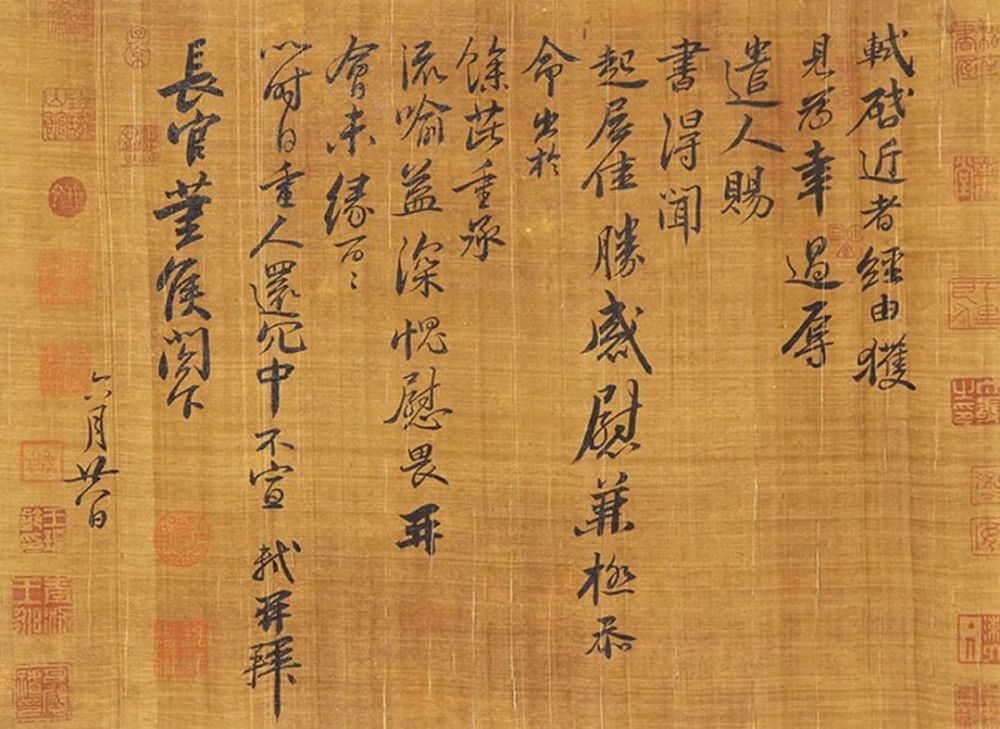 軾啓近者經由獲
見為幸過辱
遣人賜
書得聞
起居佳勝感慰兼極忝
命出於
餘芘重承
流喻益深愧慰畏再
會未緣
以時自重人還冗中不宣 軾再拜
長官董侯閣下
六月廿八日